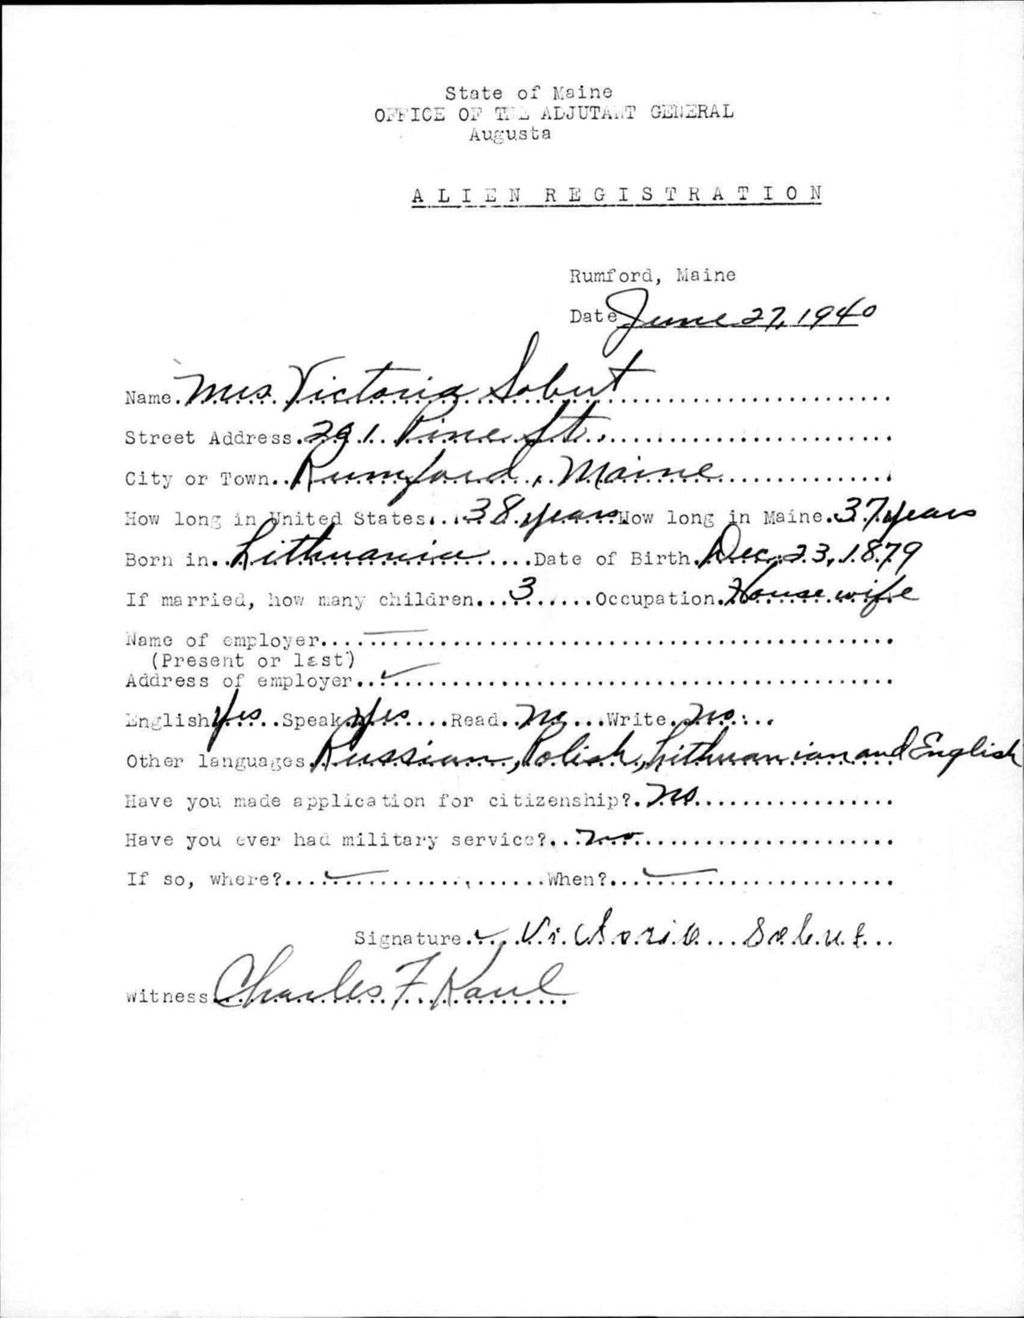 State of Maine
OFFICE OF THE ADJUTANT GENERAL
Augusta
ALIEN REGISTRATION
Rumford, Maine
Date June 27, 1940
Name Mrs Victoria Sobut
Street Address 291 Pine St.
City or Town Rumford, Maine
How long in United States 38 years How long in Maine 37 years
Born in Lithuania Date of Birth Dec. 23, 1879
If married, how many children 3 Occupation Housewife
Name of employer
(Present or last)
Address of employer
English Yes Speak Yes Read no Write no
Other languages Russian, Polish, Lithuanian and English
Have you made application for citizenship? no
Have you ever had military service? no
If so, where? When?
Signature Victoria Sobut
Witness Charles F. Kaul